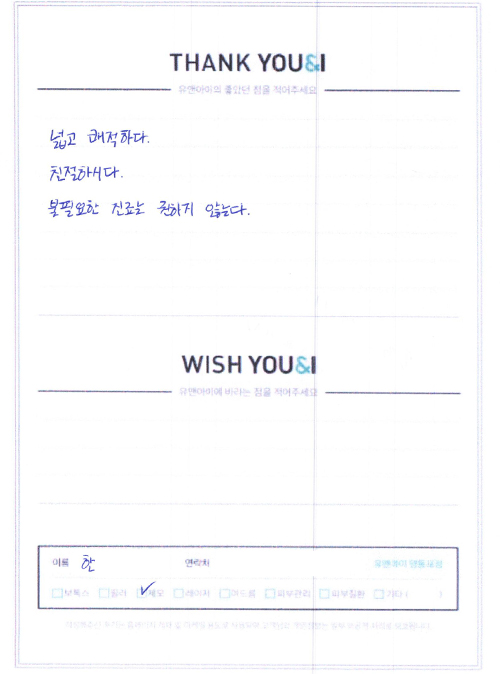 THANK YOU&I
유앤아이의 좋았던 점을 적어주세요
넓고 쾌적하다.
친절하시다.
불필요한 진료는 권하지 않는다.
WISH YOU&I
유앤아이에 바라는 점을 적어주세요
이름 한 연락처
보톡스 필러 제모 레이저 여드름 피부관리 피부질환 기타 ( )